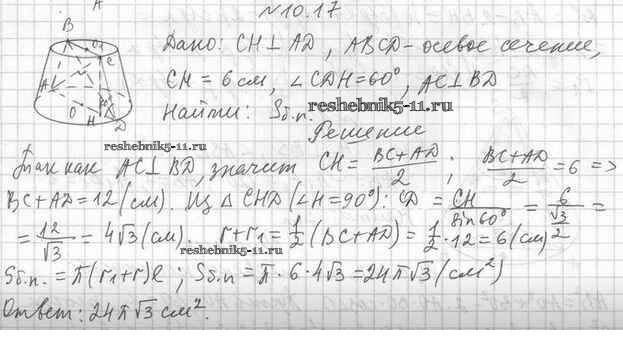 №10.17
Дано: CH⊥AD, ABCD-осевое сечение,
CH = 6 см, ∠CDH=60°, AC⊥BD
Найти: Sб.п.
reshebnik5-11.ru
Решение
reshebnik5-11.ru
Так как AC⊥BD, значит CH = (BC+AD)/2 ; (BC+AD)/2 = 6 =>
BC+AD=12 (см). Из △ CHD (∠H=90°): CD = CH/sin60° = 6/(√3/2) =
= 12/√3 = 4√3 (см). r+r₁ = 1/2 (BC+AD) = 1/2 · 12 = 6 (см)
reshebnik5-11.ru
Sб.п. = π(r₁+r)l ; Sб.п = π · 6 · 4√3 = 24π√3 (см²)
Ответ: 24π√3 см².
A
B
O₁
C
A
O
H
60°
D